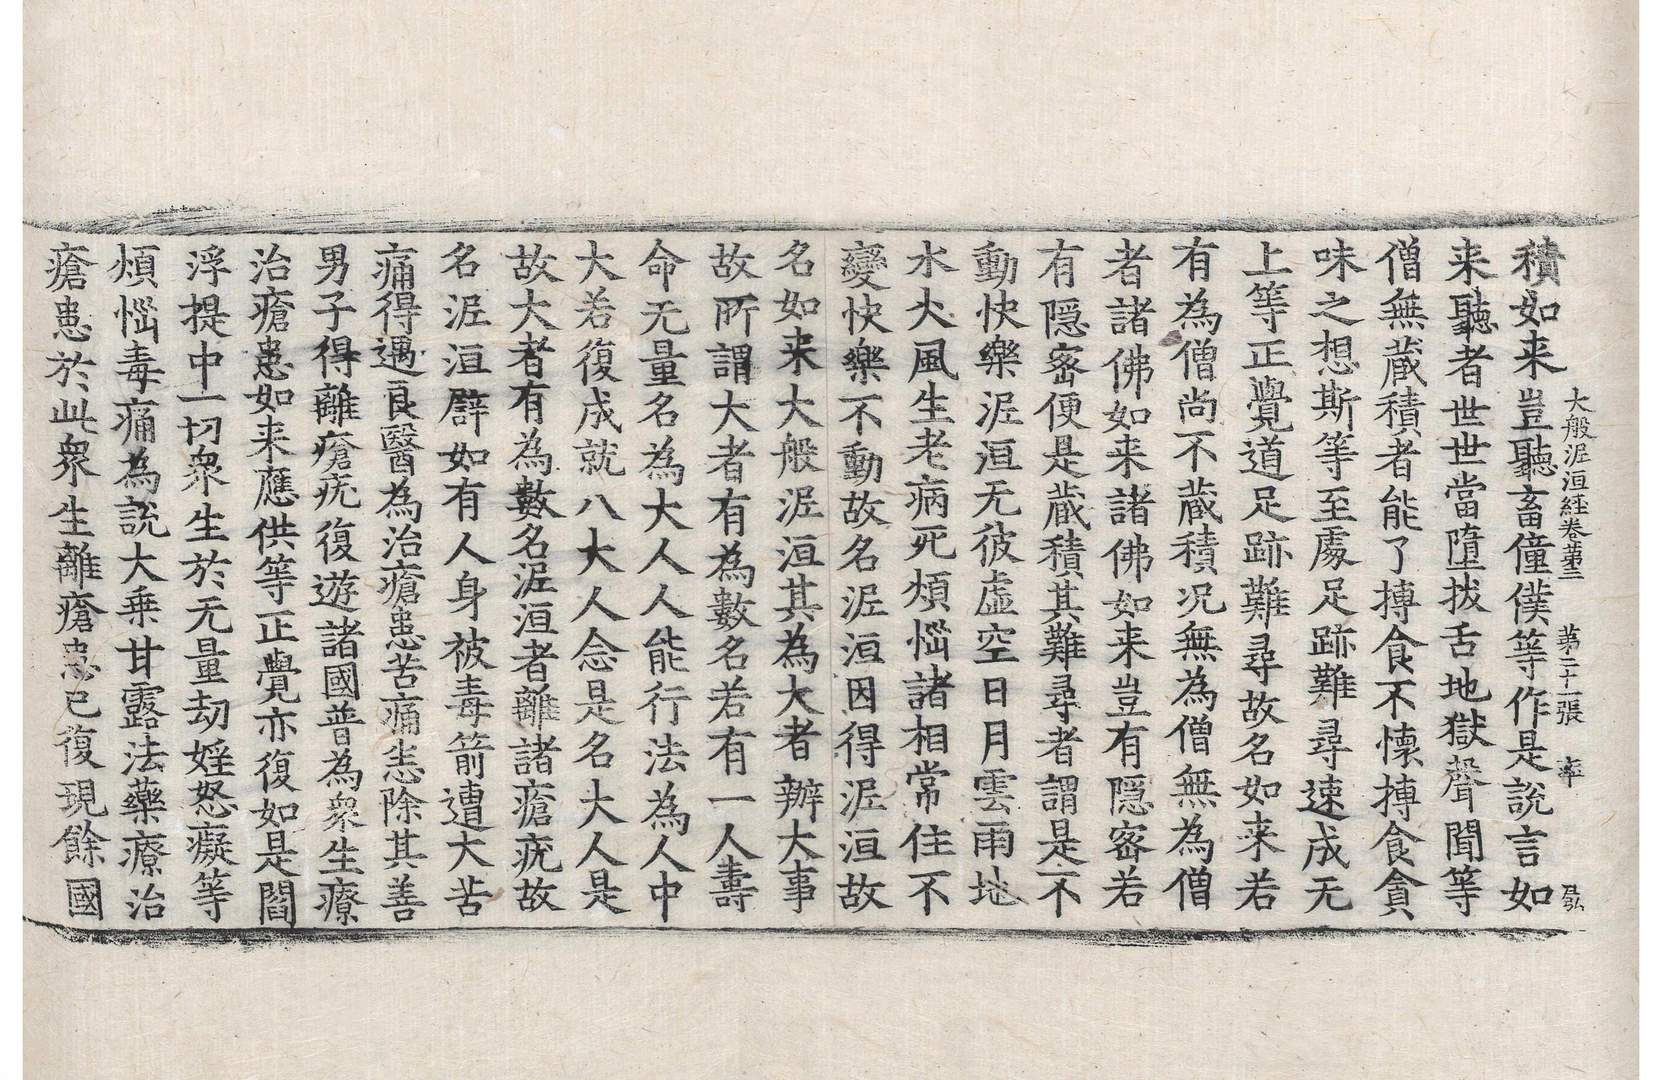 大般泥洹経卷苐三　苐二十一張　率　呂弘
積如来豈聽畜僮僕等作是說言如
来聽者世世當墮拔舌地獄聲聞等
僧無蔵積者能了摶食不懐摶食貪
味之想斯等至處足跡難尋速成无
上等正覺道足跡難尋故名如来若
有為僧尚不蔵積况無為僧無為僧
者諸佛如来諸佛如来豈有隱宻若
有隱宻便是蔵積其難尋者謂是不
動快樂泥洹无彼虛空日月雲雨地
水火風生老病死煩惱諸相常住不
變快樂不動故名泥洹因得泥洹故
名如来大般泥洹其為大者辦大事
故所謂大者有為數名若有一人壽
命无量名為大人人能行法為人中
大若復成就八大人念是名大人是
故大者有為數名泥洹者離諸瘡疣故
名泥洹譬如有人身被毒箭遭大苦
痛得遇良醫為治瘡患苦痛悉除其善
男子得離瘡疣復遊諸國普為衆生療
治瘡患如来應供等正覺亦復如是閻
浮提中一切衆生於无量劫婬怒癡等
煩惱毒痛為説大乗甘露法藥療治
瘡患於此衆生離瘡患已復現餘國